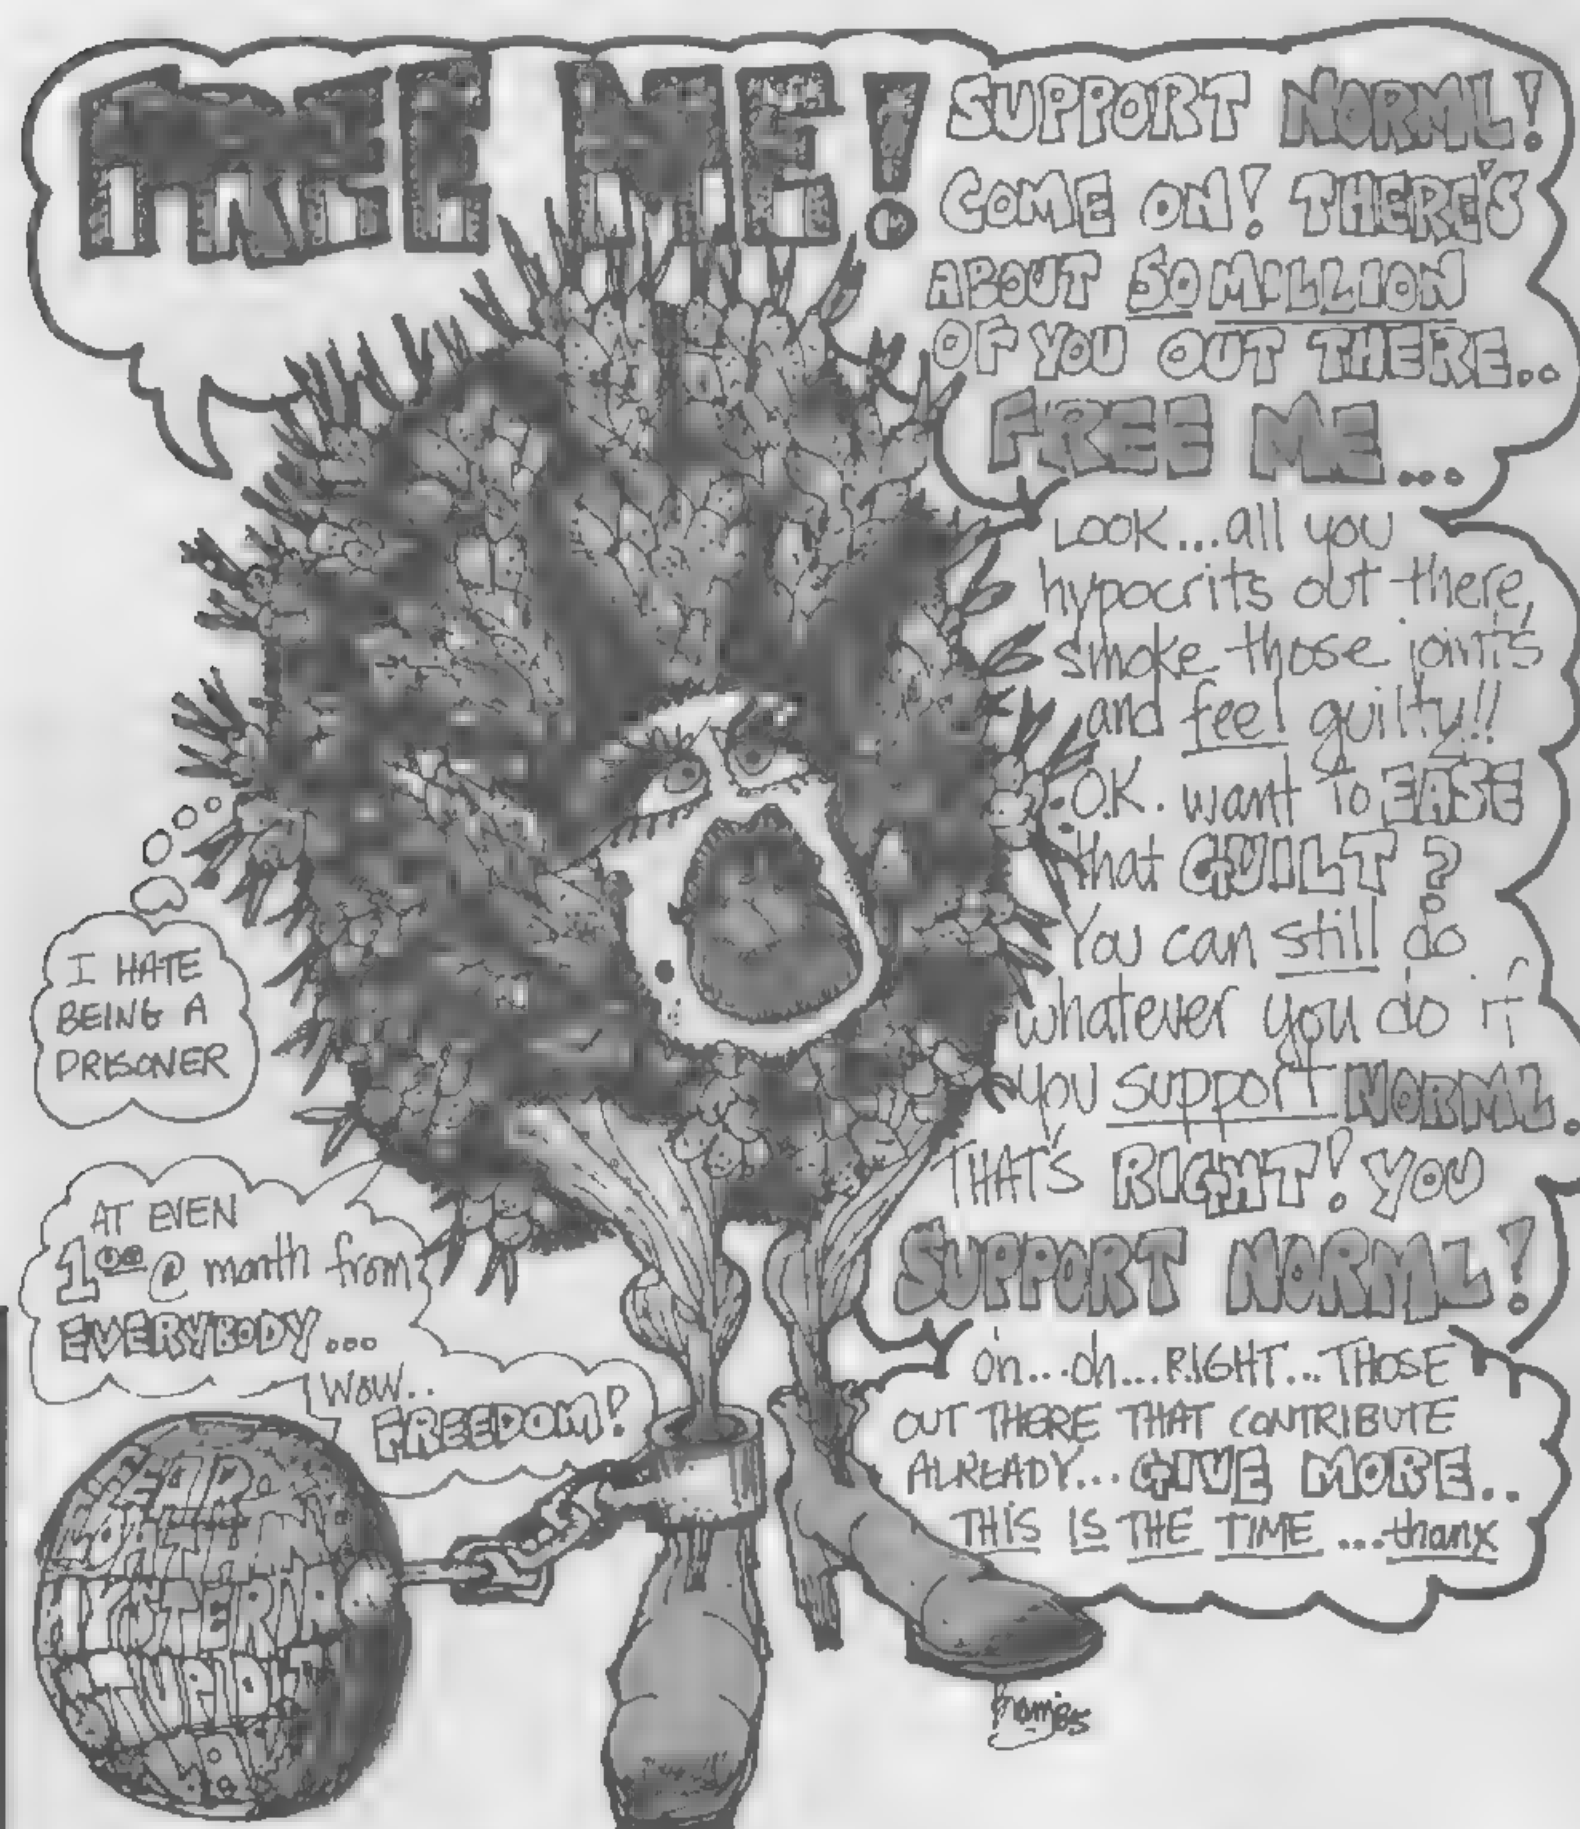 FREE ME!
SUPPORT NORML!
COME ON! THERE'S
ABOUT 50 MILLION
OF YOU OUT THERE..
FREE ME...
LOOK...all you
hypocrits out there,
smoke those joints
and feel guilty!!
O.K. want to EASE
that GUILT?
You can still do
whatever you do if
you support NORML.
THAT'S RIGHT! YOU
SUPPORT NORML!
oh...oh...RIGHT...THOSE
OUT THERE THAT CONTRIBUTE
ALREADY...GIVE MORE..
THIS IS THE TIME...thanx
I HATE
BEING A
PRISONER
AT EVEN
1.00 @ month from
EVERYBODY...
WOW..
FREEDOM!
FEAR
LOATHING
HYSTERIA
STUPIDITY
85